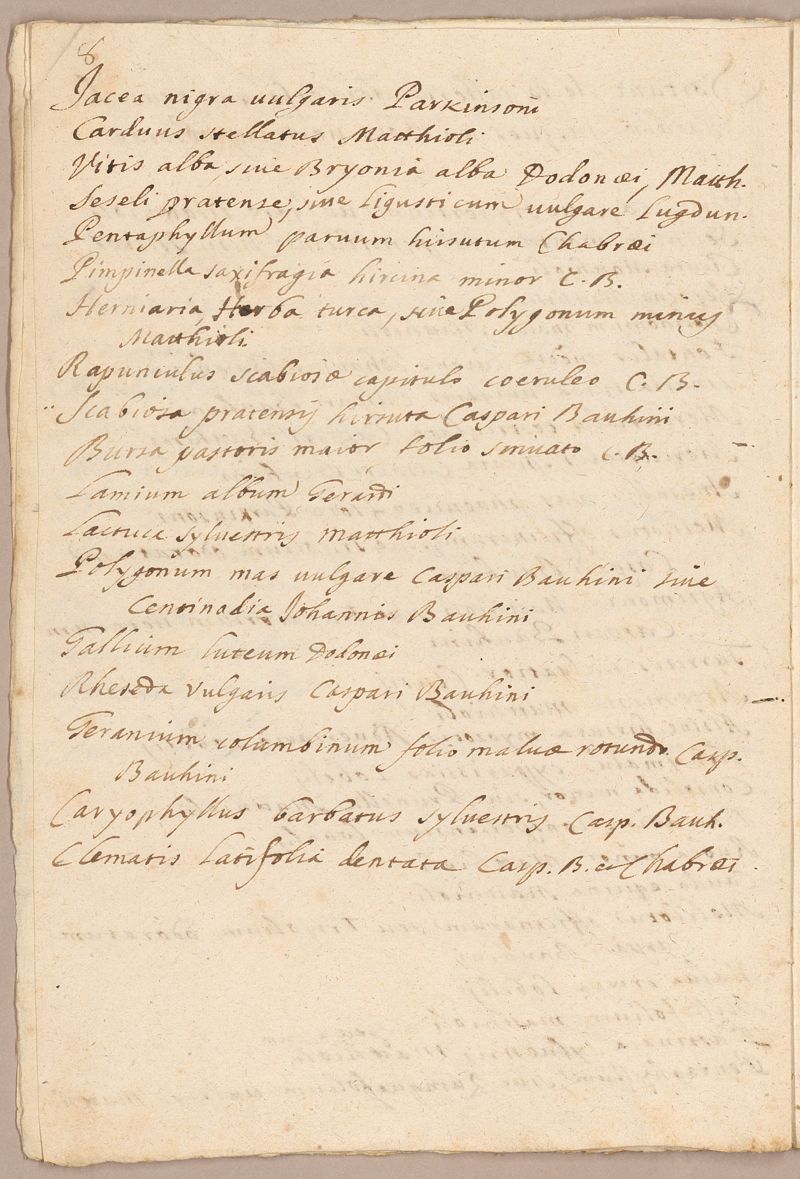 8
Jacea nigra uulgaris Parkinsoni
Carduus stellatus Matthioli
Vitis alba, siue Bryonia alba Dodonæi, Matth.
Seseli pratense, siue Ligusticum uulgare Lugdun.
Pentaphyllum paruum hirsutum Chabræi
Pimpinella saxifragia hircina minor C. B.
Herniaria, Herba turca, siue Polygonum minus
Matthioli
Rapunculus scabiosæ capitulo coeruleo C. B.
Scabiosa pratensis hirsuta Caspari Bauhini
Bursa pastoris maior folio sinuato C. B.
Lamium album Gerardi
Lactuca syluestris Matthioli
Polygonum mas uulgare Caspari Bauhini siue
Centinodia Johannis Bauhini
Gallium luteum Dodonæi
Rheseda vulgaris Caspari Bauhini
Geranium columbinum folio maluæ rotundo Casp.
Bauhini
Caryophyllus barbatus sylvestris Casp. Bauh.
Clematis latifolia dentata Casp. B. et Chabræi